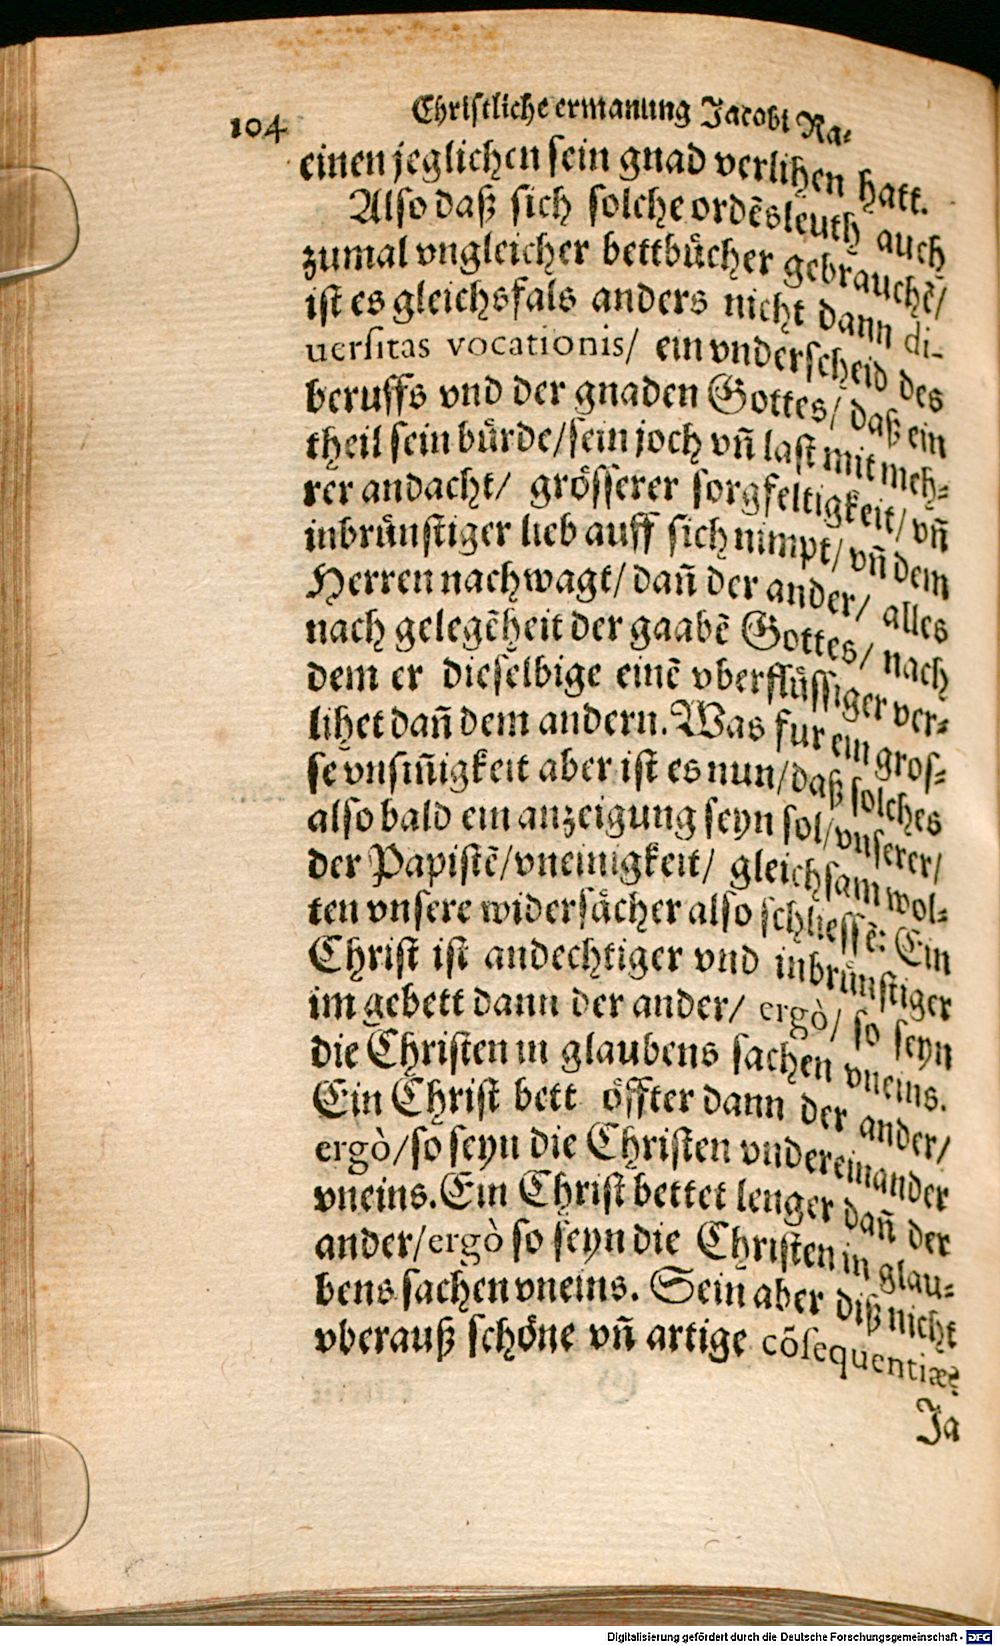 104 Christliche ermanung Jacobi Ra⸗
einen jeglichen sein gnad verlihen hatt.
Also daß sich solche ordẽsleuth auch
zumal vngleicher bettbuͤcher gebrauchẽ/
ist es gleichsfals anders nicht dann di-
uersitas vocationis/ ein vnderscheid des
beruffs vnd der gnaden Gottes/ daß ein
theil sein buͤrde/sein joch vñ last mit meh⸗
rer andacht/ groͤsserer sorgfeltigkeit/ vñ
inbruͤnstiger lieb auff sich nimpt/ vñ dem
Herren nachwagt/ dañ der ander/ alles
nach gelegẽheit der gaabẽ Gottes/ nach
dem er dieselbige einẽ vberfluͤssiger ver⸗
lihet dañ dem andern. Was fur ein gros⸗
se vnsiñigkeit aber ist es nun/daß solches
also bald ein anzeigung seyn sol/vnserer/
der Papistẽ/vneinigkeit/ gleichsam wol⸗
ten vnsere widersaͤcher also schliessẽ: Ein
Christ ist andechtiger vnd inbruͤnstiger
im gebett dann der ander/ ergò/ so seyn
die Christen in glaubens sachen vneins.
Ein Christ bett oͤffter dann der ander/
ergò/so seyn die Christen vndereinander
vneins. Ein Christ bettet lenger dañ der
ander/ergò so seyn die Christen in glau⸗
bens sachen vneins. Sein aber diß nicht
vberauß schoͤne vñ artige cõsequentiæ?
Ja
Digitalisierung gefördert durch die Deutsche Forschungsgemeinschaft - DFG